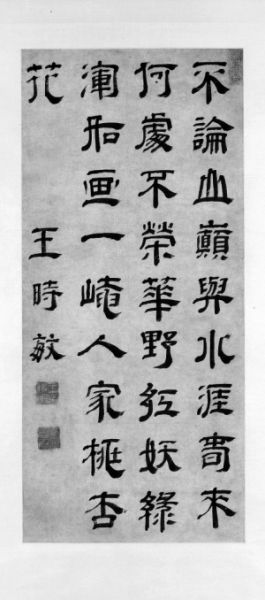 不論山巔與水涯春来
何處不榮華野紅妖綠
渾如画一崦人家桃杏
花
王時敏